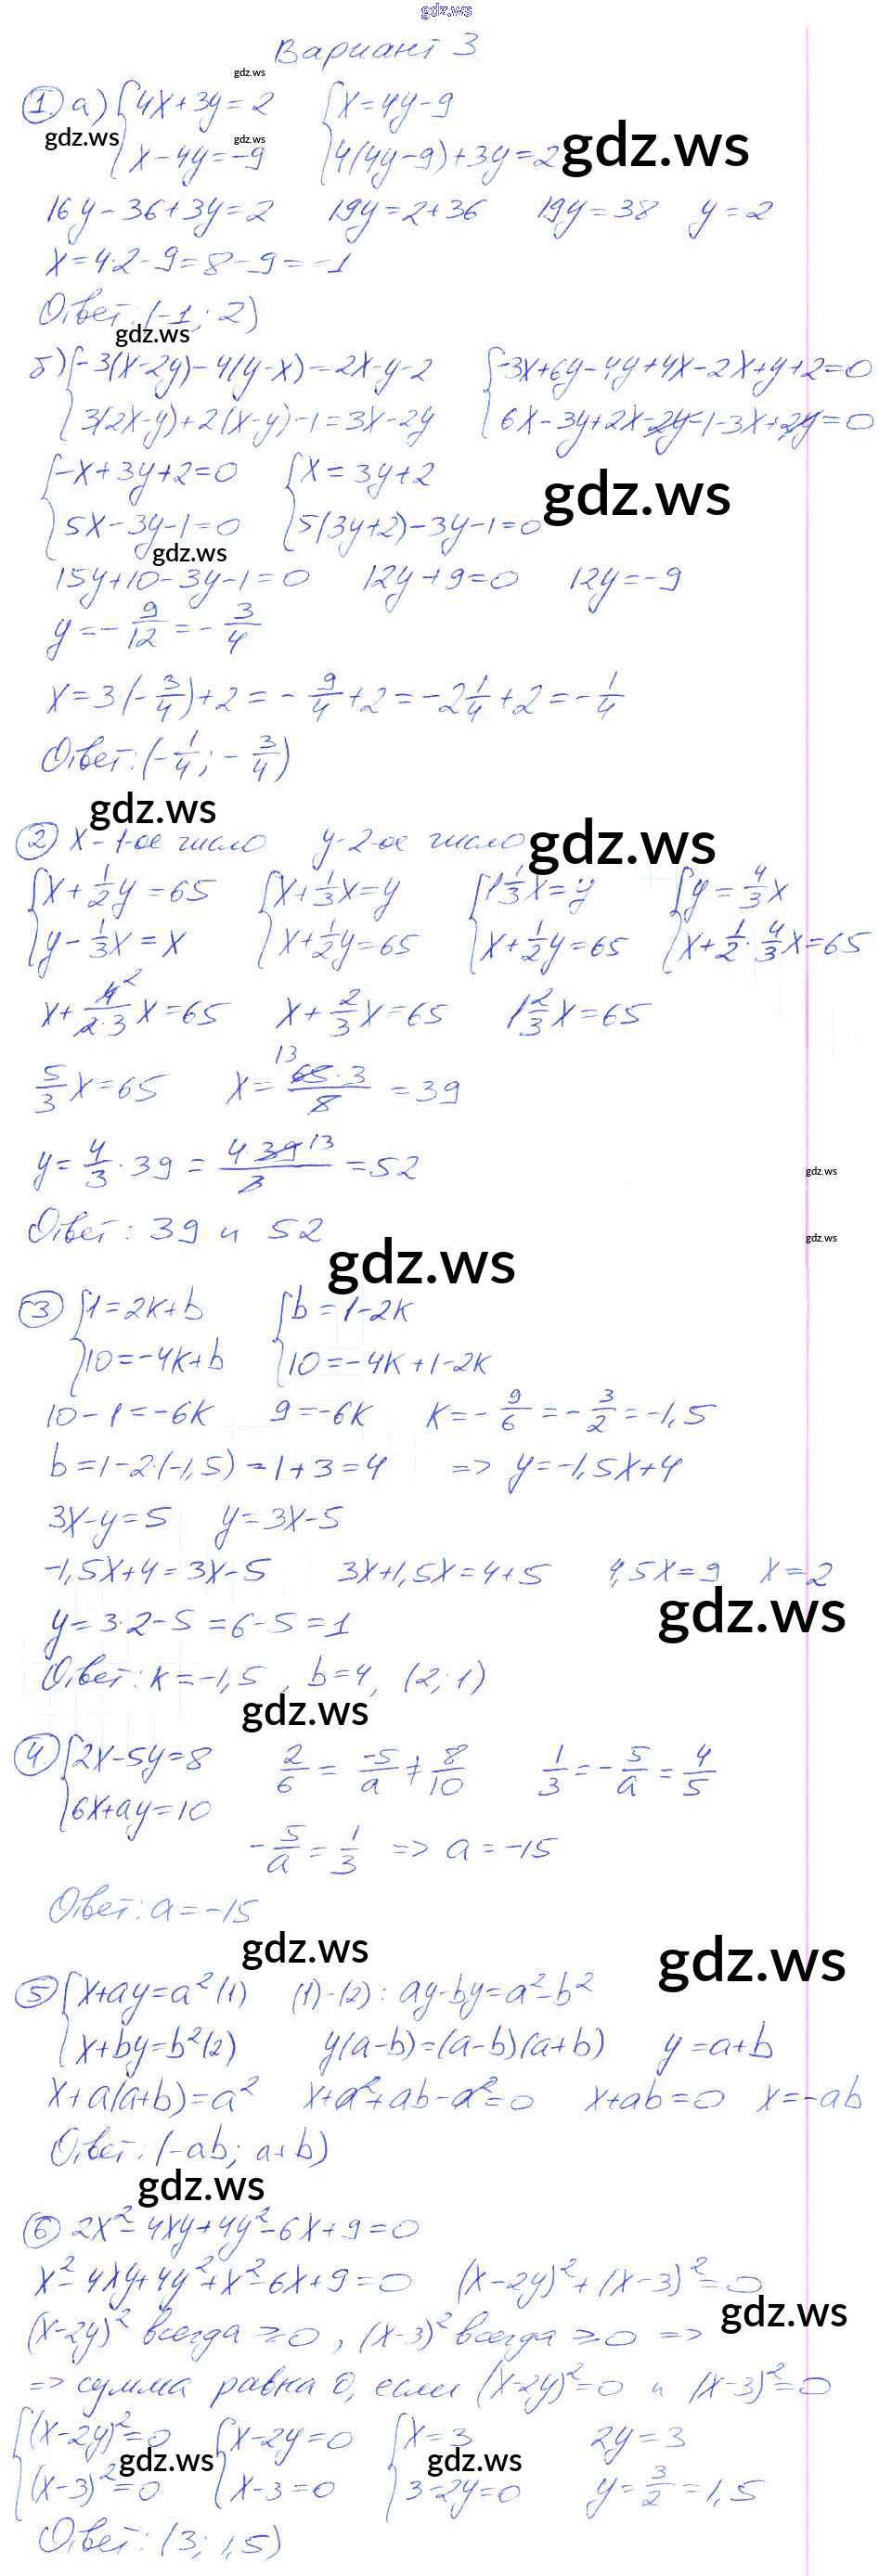 gdz.ws
Вариант 3
gdz.ws
① а) {4x+3y=2 {x=4y-9
gdz.ws gdz.ws gdz.ws
x-4y=-9 4(4y-9)+3y=2
16y-36+3y=2 19y=2+36 19y=38 y=2
x=4·2-9=8-9=-1
Ответ: (-1; 2)
gdz.ws
б) {-3(x-2y)-4(y-x)=2x-y-2 {-3x+6y-4y+4x-2x+y+2=0
3(2x-y)+2(x-y)-1=3x-2y 6x-3y+2x-2y-1-3x+2y=0
{-x+3y+2=0 {x=3y+2
gdz.ws
5x-3y-1=0 5(3y+2)-3y-1=0
gdz.ws
15y+10-3y-1=0 12y+9=0 12y=-9
y=-9/12=-3/4
x=3·(-3/4)+2=-9/4+2=-2 1/4+2=-1/4
Ответ: (-1/4; -3/4)
gdz.ws
② x-1-ое число y-2-ое число
gdz.ws
{x+1/2y=65 {x+1/3x=y {1 1/3x=y {y=4/3x
y-1/3x=x x+1/2y=65 x+1/2y=65 x+1/2·4/3x=65
x+4²/2·3x=65 x+2/3x=65 1 2/3x=65
5/3x=65 x=13 65·3/5=39
y=4/3·39=4·39 13/3=52
gdz.ws
Ответ: 39 и 52
gdz.ws
gdz.ws
③ {1=2k+b {b=1-2k
10=-4k+b 10=-4k+1-2k
10-1=-6k 9=-6k k=-9/6=-3/2=-1,5
b=1-2·(-1,5)=1+3=4 => y=-1,5x+4
3x-y=5 y=3x-5
-1,5x+4=3x-5 3x+1,5x=4+5 4,5x=9 x=2
gdz.ws
y=3·2-5=6-5=1
Ответ: k=-1,5, b=4, (2; 1)
gdz.ws
④ {2x-5y=8 2/6=-5/a≠8/10 1/3=-5/a=4/5
6x+ay=10
-5/a=1/3 => a=-15
Ответ: a=-15
gdz.ws gdz.ws
⑤ {x+ay=a² (1) (1)-(2): ay-by=a²-b²
x+by=b² (2) y(a-b)=(a-b)(a+b) y=a+b
x+a(a+b)=a² x+a²+ab-a²=0 x+ab=0 x=-ab
Ответ: (-ab; a+b)
gdz.ws
⑥ 2x²-4xy+4y²-6x+9=0
x²-4xy+4y²+x²-6x+9=0 (x-2y)²+(x-3)²=0
gdz.ws
(x-2y)² всегда ≥0, (x-3)² всегда ≥0 =>
=> сумма равна 0, если (x-2y)²=0 и (x-3)²=0
{(x-2y)²=0 {x-2y=0 {x=3 2y=3
gdz.ws gdz.ws
(x-3)²=0 x-3=0 3-2y=0 y=3/2=1,5
Ответ: (3; 1,5)